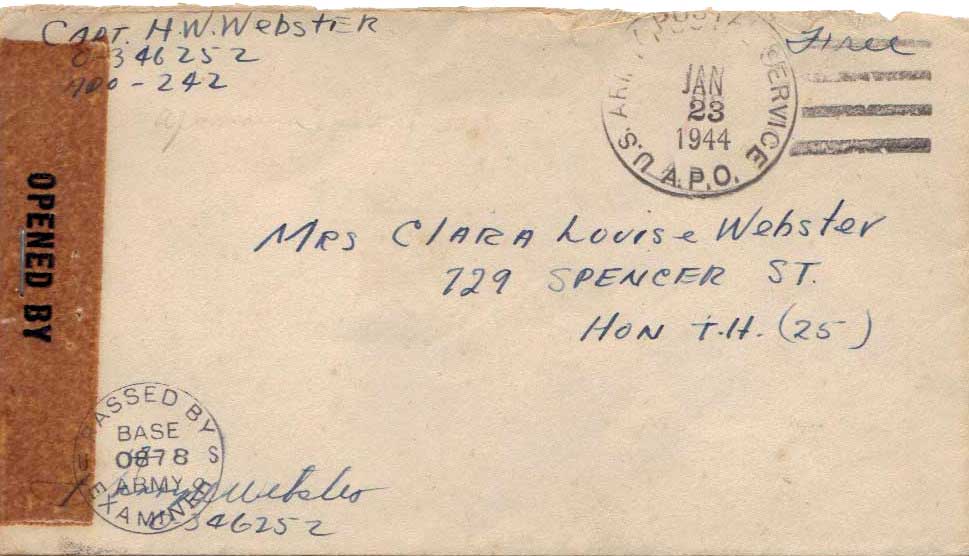 CAPT. H.W. Webster
O-346252
APO-242
Free
U.S. ARMY POSTAL SERVICE
JAN
23
1944
A.P.O.
OPENED BY
Mrs Clara Louise Webster
729 SPENCER ST.
HON T.H. (25)
PASSED BY
BASE
0878
ARMY
EXAMINER
Webster
346252